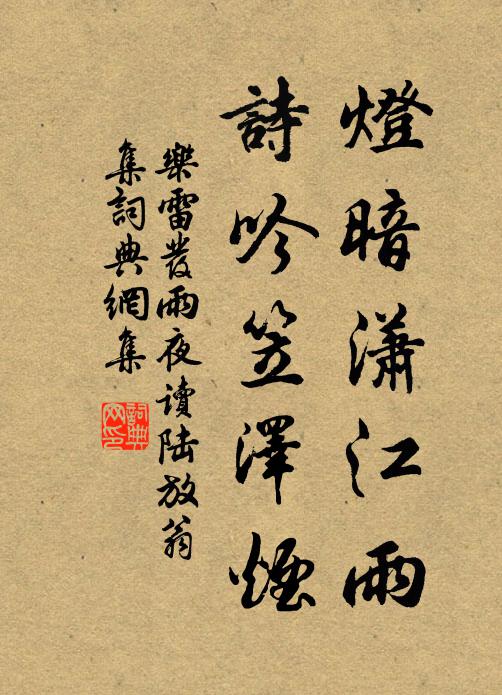 燈暗瀟江雨
詩吟笠澤煙
樂雷發雨夜讀陸放翁
集詞典網集
詞典
網印